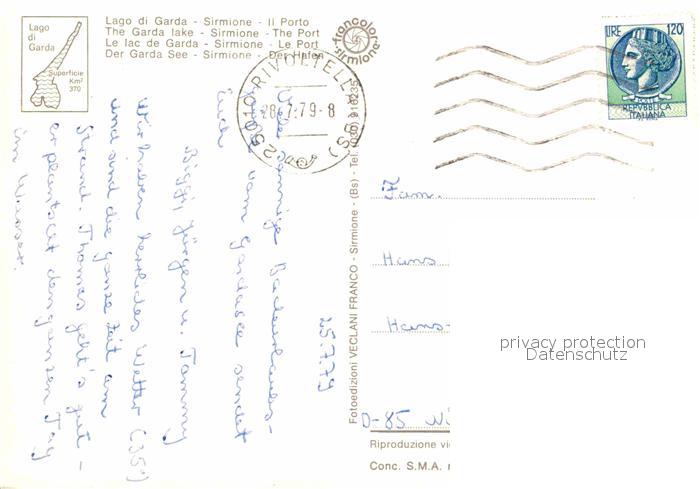 Lago di Garda - Sirmione - Il Porto
The Garda lake - Sirmione - The Port
Le lac de Garda - Sirmione - Le Port
Der Garda See - Sirmione - Der Hafen
Lago
di
Garda
Superficie
Km²
370
francolor
sirmione
25010 RIVOLTELLA (BS)
28.7.79-8
LIRE 120
REPVBBLICA
ITALIANA
25.7.79
Viele sonnige Badeurlaubs-
vom Gardasee sendet
Euch
Jürgen u. Tommy
Wir haben herrliches Wetter (35°)
und sind die ganze Zeit am
Strand. Thomas geht's gut -
er plantscht den ganzen Tag
im Wasser.
Fotoedizioni VECLANI FRANCO - Sirmione - (Bs) - Tel. (030) 916235
Fam.
Hans
Hans-
D-85
privacy protection
Datenschutz
Riproduzione vi
Conc. S.M.A.